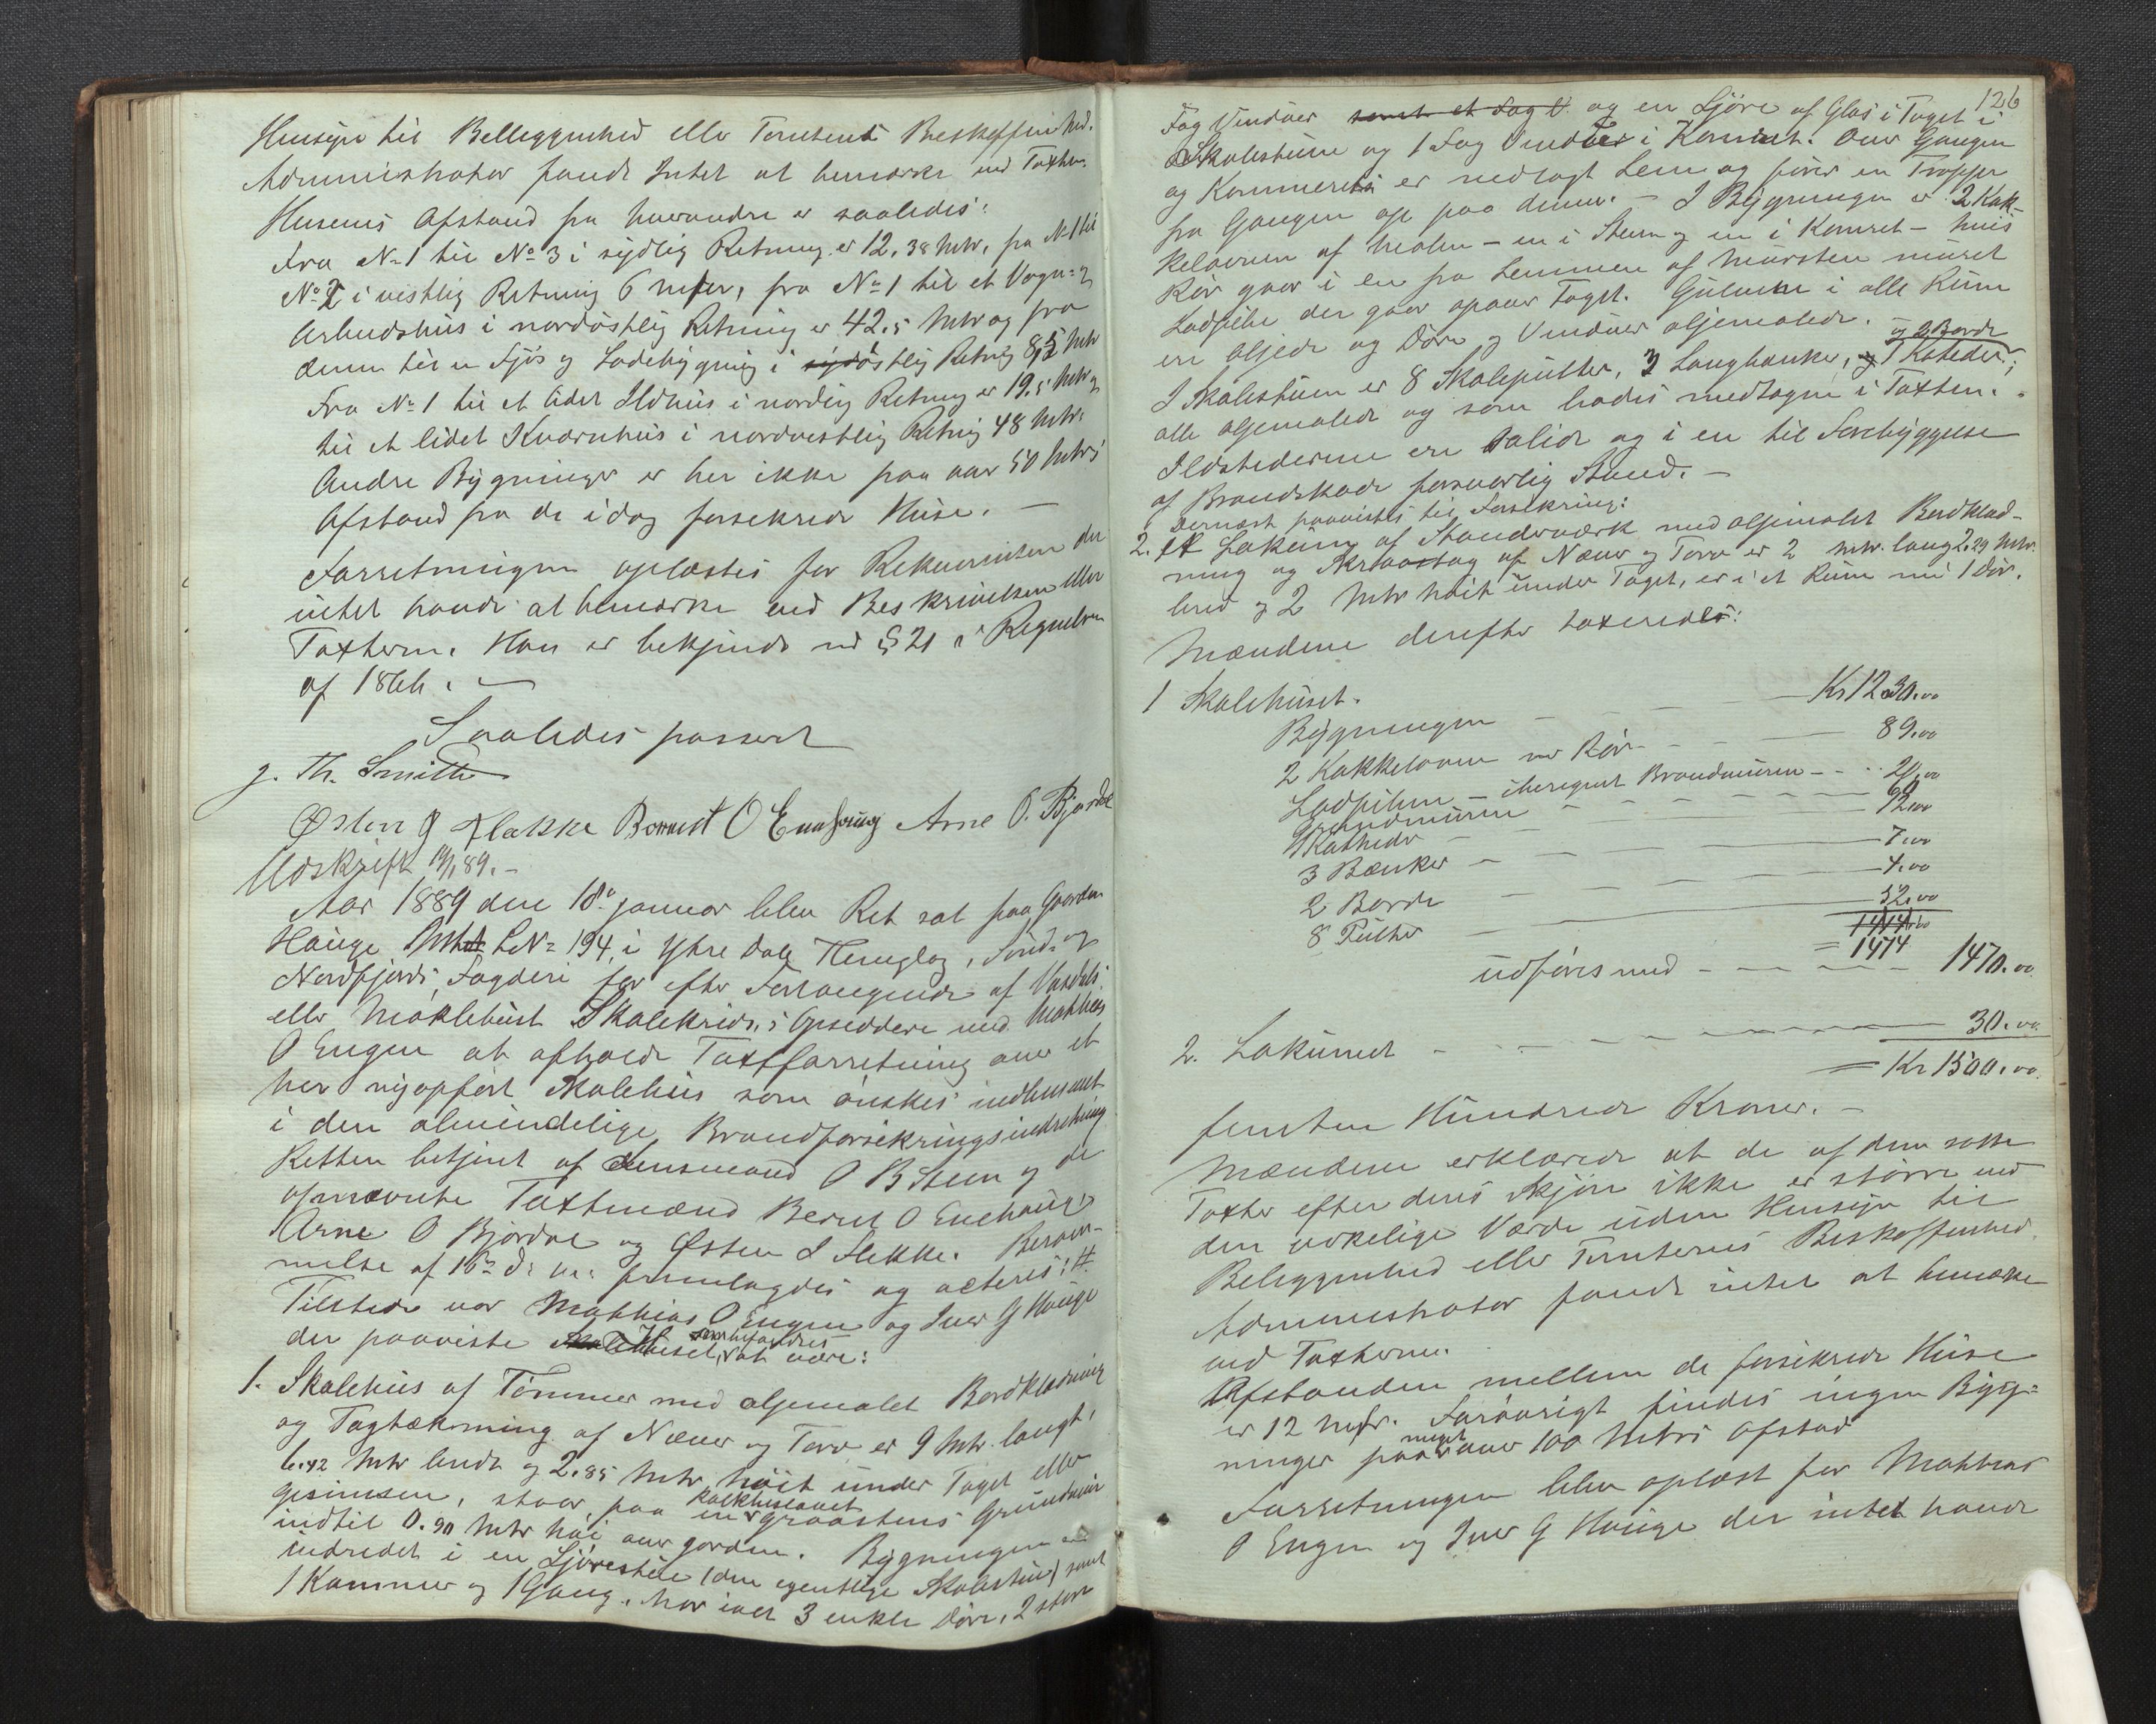 Hensyn til Belleggenhed eller Tomtens Beskaffenhed.
Administrator fandt Intet at bemærke ved Taxten.
Husenes Afstand fra hverandre er saaledes:
Fra No 1 til No 3 i sydlig Retning er 12,38 Mtr, fra No 1 til
No 2 i vestlig Retning 6 meter, fra No 1 til et Vogn= og
Arbeidshus i nordöstlig Retning er 42,5 Mtr og fra
denne til en Fjös og Ladebygning i sydöstlig Retnig 8,5 Mtr
Fra No 1 til et lidet Ildhus i nordlig Retning er 19,5 Mtr og
til et lidet Kvernhus i nordvestlig Retnig 48 Mtr.
Andre Bygninger er her ikke paa over 50 Mtrs
Afstand fra de idag forsikrede Huse. –
Forretningen oplæstes for Rekvirenten der
intet havde at bemærke ved Beskrivelsen eller
Taxterne. Han er bekjendt med § 21 i Regnelsen
af 1846. –
Saaledes passert
J. Th. Smith
Østen J Flekke Bernt O Enehaug Arne O. Bjordal
Udskrift 19/1 89. –
Aar 1889 den 18de januar blev Ret sat paa Gaarden
Hauge LNo 194, i Ytre Dale Thinglag, Sönd- og
Nordfjords Fogderi for efter Forlangende af Vasdals
eller Möklebust Skolekreds, i Gjseddere ved Mathias
O Engen at afholde Taxtforretning over et
her nyopfört Skolehus som önskes indlemmet
i den almindelige Brandforsikringsindretning
Retten betjent af Lensmand O B Steen og de
opnævnte Taxtmænd Bernt O Enehaug,
Arne O Bjordal og Østen J Flekke. Beram-
melse af 16de ds ms fremlagdes og acteres: #
Tilstede var Mathias O Engen og Iver G Hauge
der paaviste Skolehuset, som befandtes at være:
1. Skolehus af Tömmer med oljemalet Bordklædning
og Tagtækning af Næver og Torv er 9 Mtr. langt,
6.42 Mtr bredt og 2.85 Mtr höit under Taget eller
gesimsen, staar paa en kalkbeslaaet graastens Grundmur
indtil 0.90 Mtr höi over jorden. Bygningen er
indredet i en Sjörestue (den egentlige Skolestue) samt
1 Kammer og 1 Gang, har ialt 3 enkle Döre, 2 store
126
Fag Vinduer samt et Fag V. og en Ljöre af Glas i Taget i
Skolestuen og 1 Fag Vindue i Kamret. Over Gangen
og Kammeret er nedlagt Lem og förer en Trappe
fra Gangen op paa denne. – I Bygningen er 2 Kak-
kelovne af Malm – en i Stuen og en i Kamret – hvis
Rör gaar i en fra Lemmen af mursten muret
Ladpibe der gaar op over Taget. Gulvene i alle Rum
ere oljede og Döre og Vinduer oljemalede.
I Skolestuen er 8 Skolepulter, 3 Langbænker, og 1 Kateder; og 2 Borde
alle oljemalede og som bades medtagne i Taxten.
Ildstederne ere solide og i en til Forebyggelse
af Brandskade forsvarlig Stand. –
Dernæst paavistes til Forsikring:
2. Et Lokum af Standværk med oljemalet Bordklæd-
ning og Skraatag af Næver og Torv er 2 Mtr. lang 2.29 Mtr.
bred og 2 Mtr höit under Taget, er i et Rum med 1 Dör.
Mændene derefter taxeredes:
1 Skolehuset.
Bygningen – – – Kr 1230.00
2 Kakkelovne med Rör – – – 89.00
Ladpiben – iberegnet Brandmuren – – 20.00
Grundmuren – – – 60
1 Kathedr – – – 12.00
3 Bænker – – – 7.00
2 Borde – – – 4.00
8 Pulter – – – 52.00
1414.00
= 1474
udföres med – – – 1470.00
2. Lokumet – – – 30.00
= Kr 1500.00
femten Hundrede Kroner. –
Mændene erklærede at de af dem satte
Taxter efter deres Skjön ikke er större end
den virkelige Værdi uden Hensyn til
Beleggenhed eller Tomternes Beskaffenhed.
Administrator fandt intet at bemærke
ved Taxterne.
Afstanden mellem de forsikrede Huse
er 12 Metr. Foröyrigt findes ingen Byg-
ninger paa noget over 100 Metrs Afstad
Forretningen blev oplæst for Mathias
O Engen og Iver G Hauge der intet havde